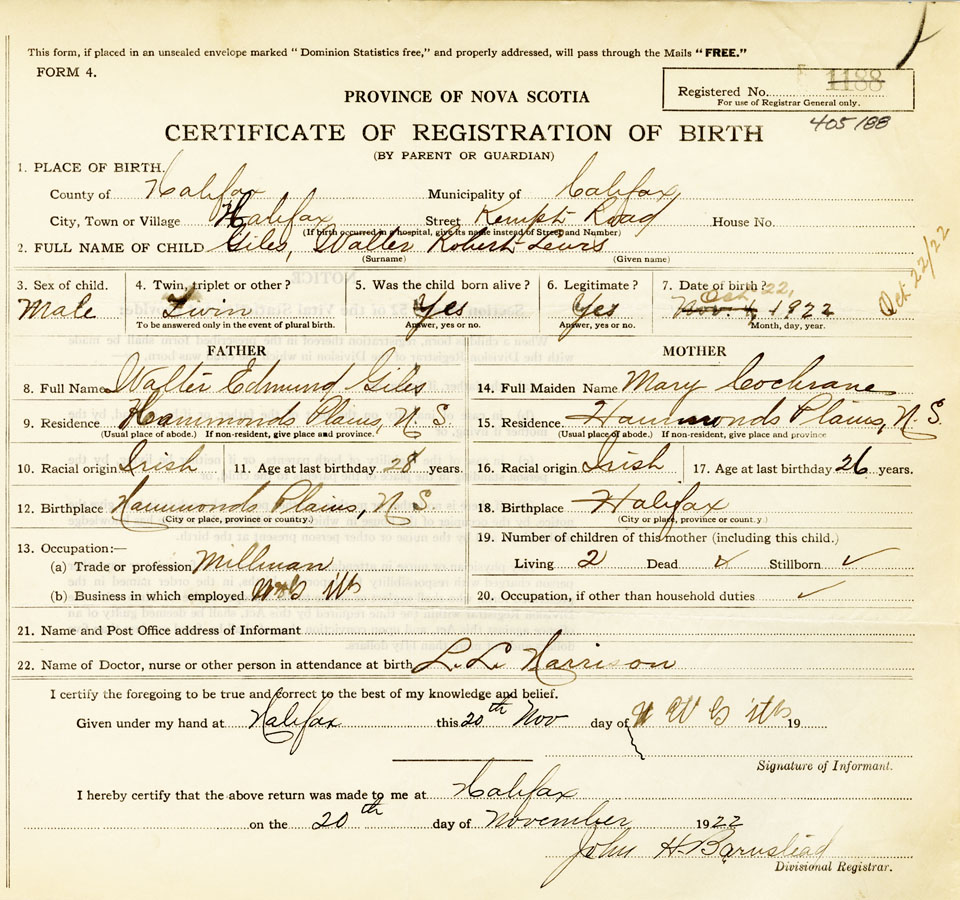 This form, if placed in an unsealed envelope marked "Dominion Statistics free," and properly addressed, will pass through the Mails "FREE."
FORM 4.
Registered No. 1188
For use of Registrar General only.
405188
PROVINCE OF NOVA SCOTIA
CERTIFICATE OF REGISTRATION OF BIRTH
(BY PARENT OR GUARDIAN)
1. PLACE OF BIRTH.
County of Halifax Municipality of Halifax
City, Town or Village Halifax Street Kempt Road House No.
(If birth occurred in a hospital, give its name instead of Street and Number)
2. FULL NAME OF CHILD Giles, Walter Robert Lewis
(Surname) (Given name)
Oct 22/22
3. Sex of child. 4. Twin, triplet or other? 5. Was the child born alive? 6. Legitimate? 7. Date of birth?
Oct 22,
Male Twin Yes Yes Nov. 4, 1922
To be answered only in the event of plural birth. Answer, yes or no. Answer, yes or no. Month, day, year.
FATHER MOTHER
8. Full Name Walter Edmund Giles 14. Full Maiden Name Mary Cochrane
9. Residence Hammonds Plains, N.S. 15. Residence Hammonds Plains, N.S.
(Usual place of abode.) If non-resident, give place and province. (Usual place of abode.) If non-resident, give place and province
10. Racial origin Irish 11. Age at last birthday 28 years. 16. Racial origin Irish 17. Age at last birthday 26 years.
12. Birthplace Hammonds Plains, N S 18. Birthplace Halifax
(City or place, province or country.) (City or place, province or country.)
13. Occupation:— 19. Number of children of this mother (including this child.)
(a) Trade or profession Millman Living 2 Dead Stillborn
(b) Business in which employed 20. Occupation, if other than household duties
21. Name and Post Office address of Informant
22. Name of Doctor, nurse or other person in attendance at birth L. L. Harrison
I certify the foregoing to be true and correct to the best of my knowledge and belief.
Given under my hand at Halifax this 20th Nov day of 19
Signature of Informant.
I hereby certify that the above return was made to me at Halifax
on the 20th day of November 1922
John H. Barnstead
Divisional Registrar.